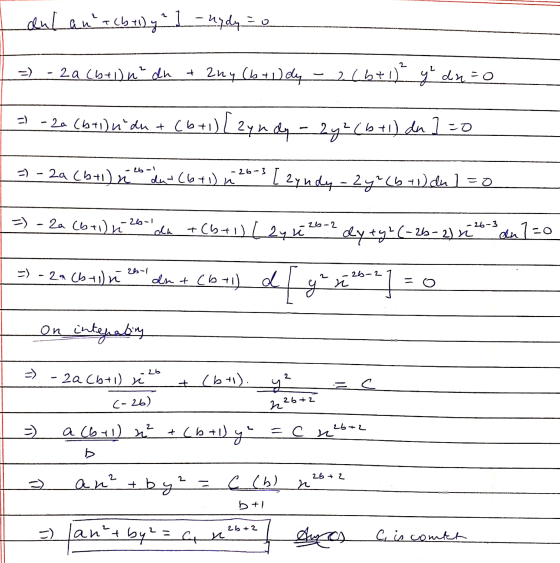 dx[ ax² + (b+1)y² ] - xydy = 0
=> -2a(b+1)x² dx + 2xy(b+1)dy - 2(b+1)² y² dx = 0
=> -2a(b+1)x² dx + (b+1)[ 2yx dy - 2y²(b+1) dx ] = 0
=> -2a(b+1)x^{-2b-1} dx + (b+1)x^{-2b-3} [ 2yxdy - 2y²(b+1)dx ] = 0
=> -2a(b+1)x^{-2b-1} dx + (b+1)[ 2yx^{-2b-2} dy + y²(-2b-2)x^{-2b-3} dx ] = 0
=> -2a(b+1)x^{-2b-1} dx + (b+1) d[ y² x^{-2b-2} ] = 0
On integrating
=> -2a(b+1)x^{-2b} / (-2b) + (b+1). y² / x^{2b+2} = C
=> a(b+1)/b x² + (b+1)y² = C x^{2b+2}
=> ax² + by² = C(b)/(b+1) x^{2b+2}
=> ax² + by² = C₁ x^{2b+2} C₁ is constt